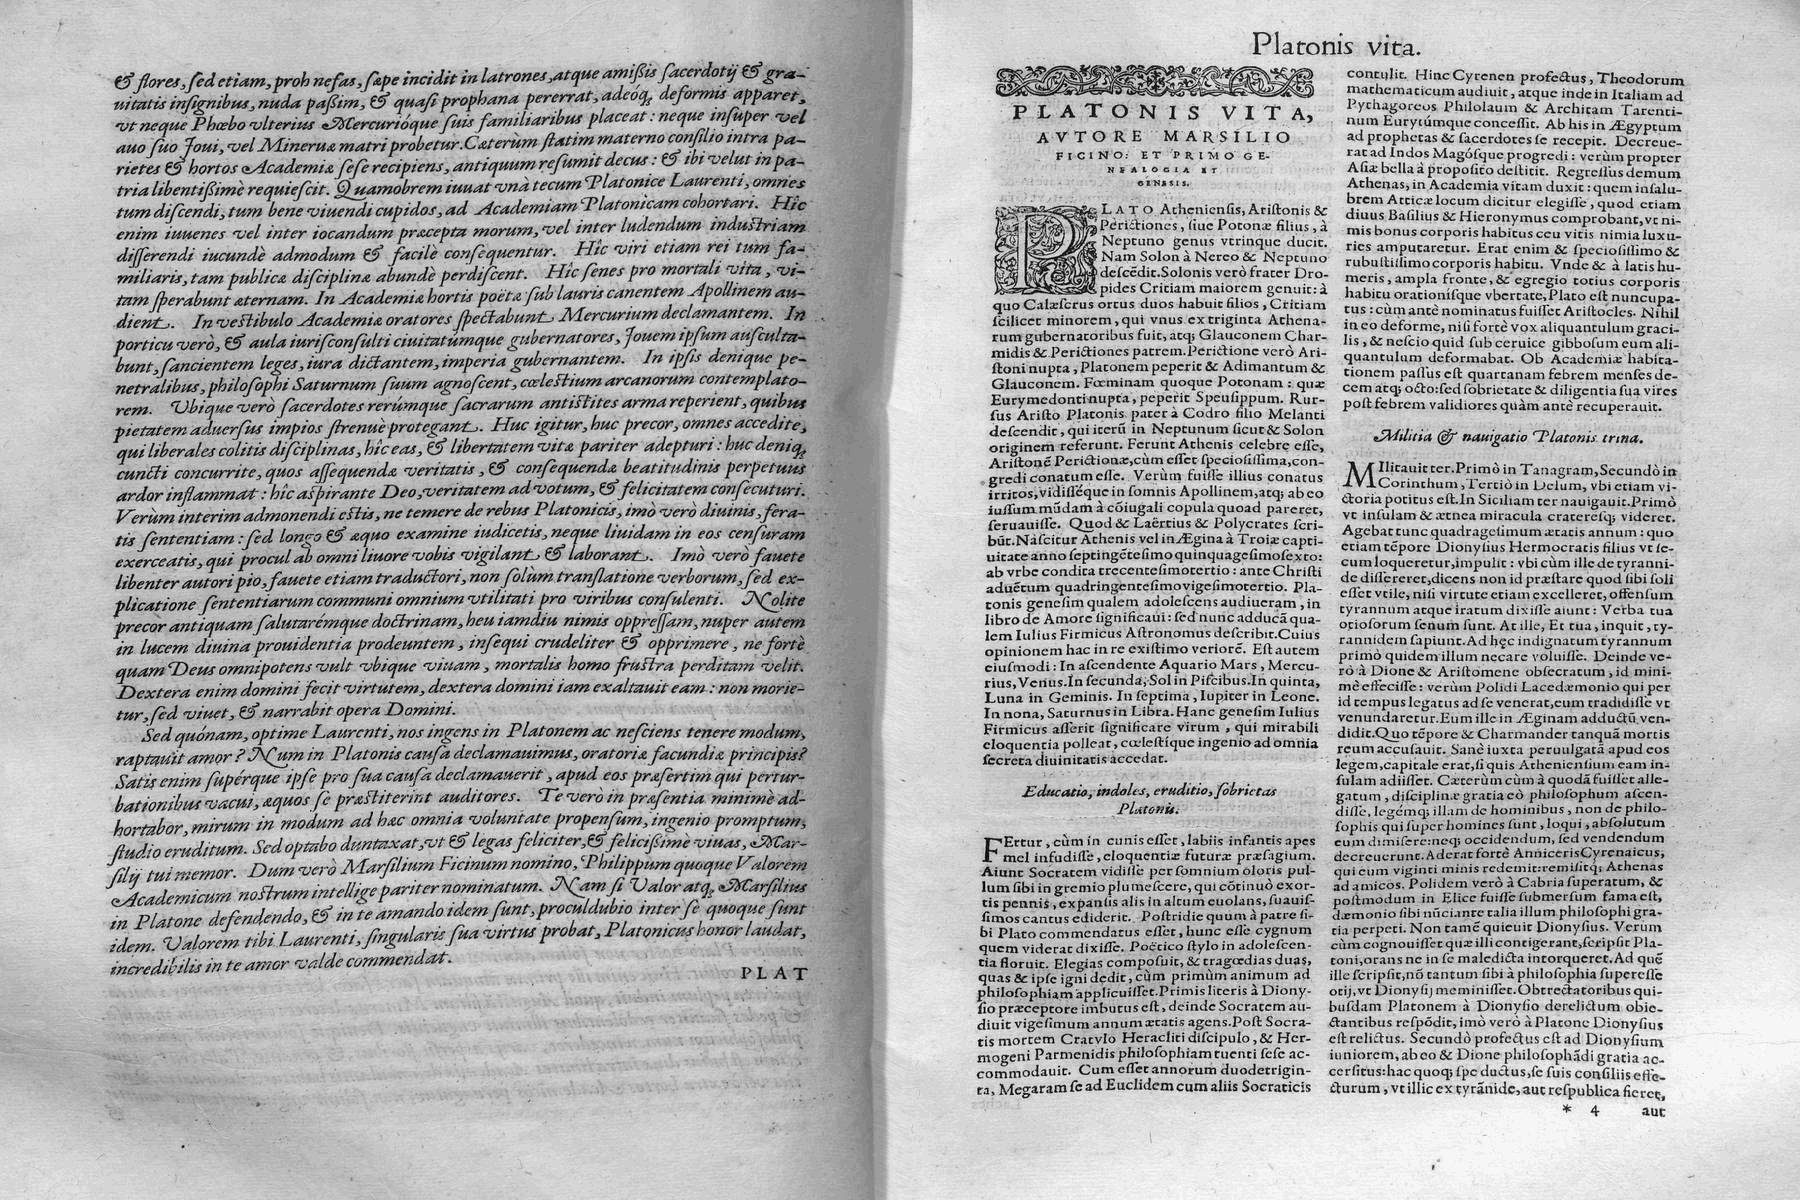 & flores, sed etiam, proh nefas, sæpe incidit in latrones, atque amißis sacerdotij & gra-
uitatis insignibus, nuda paßim, & quasi prophana pererrat, adeóq; deformis apparet,
vt neque Phœbo vlterius Mercurióque suis familiaribus placeat: neque insuper vel
auo suo Joui, vel Mineruæ matri probetur. Cæterùm statim materno consilio intra pa-
rietes & hortos Academiæ sese recipiens, antiquum resumit decus: & ibi velut in pa-
tria libentißimè requiescit. Quamobrem iuuat vnà tecum Platonice Laurenti, omnes
tum discendi, tum bene viuendi cupidos, ad Academiam Platonicam cohortari. Hîc
enim iuuenes vel inter iocandum præcepta morum, vel inter ludendum industriam
disserendi iucundè admodum & facilè consequentur. Hîc viri etiam rei tum fa-
miliaris, tam publicæ disciplinæ abundè perdiscent. Hîc senes pro mortali vita, vi-
tam sperabunt æternam. In Academiæ hortis poëtæ sub lauris canentem Apollinem au-
dient. In vestibulo Academiæ oratores spectabunt Mercurium declamantem. In
porticu verò, & aula iurisconsulti ciuitatúmque gubernatores, Jouem ipsum ausculta-
bunt, sancientem leges, iura dictantem, imperia gubernantem. In ipsis denique pe-
netralibus, philosophi Saturnum suum agnoscent, cœlestium arcanorum contemplato-
rem. Vbique verò sacerdotes rerúmque sacrarum antistites arma reperient, quibus
pietatem aduersus impios strenuè protegant. Huc igitur, huc precor, omnes accedite,
qui liberales colitis disciplinas, hîc eas, & libertatem vitæ pariter adepturi: huc deniq;
cuncti concurrite, quos assequendæ veritatis, & consequendæ beatitudinis perpetuus
ardor inflammat: hîc aspirante Deo, veritatem ad votum, & felicitatem consecuturi.
Verùm interim admonendi estis, ne temere de rebus Platonicis, imò verò diuinis, fera-
tis sententiam: sed longo & æquo examine iudicetis, neque liuidam in eos censuram
exerceatis, qui procul ab omni liuore vobis vigilant & laborant. Imò verò fauete
libenter autori pio, fauete etiam traductori, non solùm translatione verborum, sed ex-
plicatione sententiarum communi omnium vtilitati pro viribus consulenti. Nolite
precor antiquam salutarémque doctrinam, heu iamdiu nimis oppressam, nuper autem
in lucem diuina prouidentia prodeuntem, insequi crudeliter & opprimere, ne fortè
quam Deus omnipotens vult vbique viuam, mortalis homo frustra perditam velit.
Dextera enim domini fecit virtutem, dextera domini iam exaltauit eam: non morie-
tur, sed viuet, & narrabit opera Domini.
Sed quónam, optime Laurenti, nos ingens in Platonem ac nesciens tenere modum,
raptauit amor? Num in Platonis causa declamauimus, oratoriæ facundiæ principis?
Satis enim supérque ipse pro sua causa declamauerit, apud eos præsertim qui pertur-
bationibus vacui, æquos se præstiterint auditores. Te verò in præsentia minimè ad-
hortabor, mirum in modum ad hæc omnia voluntate propensum, ingenio promptum,
studio eruditum. Sed optabo duntaxat, vt & legas feliciter, & felicißimè viuas, Mar-
silij tui memor. Dum verò Marsilium Ficinum nomino, Philippum quoque Valorem
Academicum nostrum intellige pariter nominatum. Nam si Valor atq; Marsilius
in Platone defendendo, & in te amando idem sunt, proculdubio inter se quoque sunt
idem. Valorem tibi Laurenti, singularis sua virtus probat, Platonicus honor laudat,
incredibilis in te amor valde commendat.
PLAT
Platonis vita.
PLATONIS VITA,
AVTORE MARSILIO
FICINO: ET PRIMO GE-
NEALOGIA ET
GENESIS.
PLATO Atheniensis, Aristonis &
Perictiones, siue Potonæ filius, à
Neptuno genus vtrinque ducit.
Nam Solon à Nereo & Neptuno
descēdit. Solonis verò frater Dro-
pides Critiam maiorem genuit: à
quo Calæscrus ortus duos habuit filios, Critiam
scilicet minorem, qui vnus ex triginta Athena-
rum gubernatoribus fuit, atq; Glauconem Char-
midis & Perictiones patrem. Perictione verò Ari-
stoni nupta, Platonem peperit & Adimantum &
Glauconem. Fœminam quoque Potonam: quæ
Eurymedonti nupta, peperit Speusippum. Rur-
sus Aristo Platonis pater à Codro filio Melanti
descendit, qui iterū in Neptunum sicut & Solon
originem referunt. Ferunt Athenis celebre esse,
Aristonē Perictionæ, cùm esset speciosissima, con-
gredi conatum esse. Verùm fuisse illius conatus
irritos, vidisséque in somnis Apollinem, atq; ab eo
iussum mūdam à cōiugali copula quoad pareret,
seruauisse. Quod & Laërtius & Polycrates scri-
būt. Nascitur Athenis vel in Ægina à Troiæ capti-
uitate anno septingētesimo quinquagesimosexto:
ab vrbe condita trecentesimotertio: ante Christi
aduētum quadringentesimovigesimotertio. Pla-
tonis genesim qualem adolescens audiueram, in
libro de Amore significaui: sed nunc adducā qua-
lem Iulius Firmicus Astronomus describit. Cuius
opinionem hac in re existimo veriorē. Est autem
eiusmodi: In ascendente Aquario Mars, Mercu-
rius, Venus. In secunda, Sol in Piscibus. In quinta,
Luna in Geminis. In septima, Iupiter in Leone.
In nona, Saturnus in Libra. Hanc genesim Iulius
Firmicus asserit significare virum, qui mirabili
eloquentia polleat, cœlestíque ingenio ad omnia
secreta diuinitatis accedat.
Educatio, indoles, eruditio, sobrietas
Platonis.
FErtur, cùm in cunis esset, labiis infantis apes
mel infudisse, eloquentiæ futuræ præsagium.
Aiunt Socratem vidisse per somnium oloris pul-
lum sibi in gremio plumescere, qui cōtinuò exor-
tis pennis, expansis alis in altum euolans, suauis-
simos cantus ediderit. Postridie quum à patre si-
bi Plato commendatus esset, hunc esse cygnum
quem viderat dixisse. Poëtico stylo in adolescen-
tia floruit. Elegias composuit, & tragœdias duas,
quas & ipse igni dedit, cùm primùm animum ad
philosophiam applicuisset. Primis literis à Diony-
sio præceptore imbutus est, deinde Socratem au-
diuit vigesimum annum ætatis agens. Post Socra-
tis mortem Cratylo Heracliti discipulo, & Her-
mogeni Parmenidis philosophiam tuenti sese ac-
commodauit. Cum esset annorum duodetrigin-
ta, Megaram se ad Euclidem cum aliis Socraticis
contulit. Hinc Cyrenen profectus, Theodorum
mathematicum audiuit, atque inde in Italiam ad
Pythagoreos Philolaum & Architam Tarenti-
num Eurytúmque concessit. Ab his in Ægyptum
ad prophetas & sacerdotes se recepit. Decreue-
rat ad Indos Magósque progredi: verùm propter
Asiæ bella à proposito destitit. Regressus demum
Athenas, in Academia vitam duxit: quem insalu-
brem Atticæ locum dicitur elegisse, quod etiam
diuus Basilius & Hieronymus comprobant, vt ni-
mis bonus corporis habitus ceu vitis nimia luxu-
ries amputaretur. Erat enim & speciosissimo &
robustissimo corporis habitu. Vnde & à latis hu-
meris, ampla fronte, & egregio totius corporis
habitu orationisque vbertate, Plato est nuncupa-
tus: cùm antè nominatus fuisset Aristocles. Nihil
in eo deforme, nisi fortè vox aliquantulum graci-
lis, & nescio quid sub ceruice gibbosum eum ali-
quantulum deformabat. Ob Academiæ habita-
tionem passus est quartanam febrem menses de-
cem atq; octo: sed sobrietate & diligentia sua vires
post febrem validiores quàm antè recuperauit.
Militia & nauigatio Platonis trina.
MIlitauit ter. Primò in Tanagram, Secundò in
Corinthum, Tertiò in Delum, vbi etiam vi-
ctoria potitus est. In Siciliam ter nauigauit. Primò
vt insulam & ætnea miracula crateresq; videret.
Agebat tunc quadragesimum ætatis annum: quo
etiam tēpore Dionysius Hermocratis filius vt se-
cum loqueretur, impulit: vbi cùm ille de tyranni-
de dissereret, dicens non id præstare quod sibi soli
esset vtile, nisi virtute etiam excelleret, offensum
tyrannum atque iratum dixisse aiunt: Verba tua
otiosorum senum sunt. At ille, Et tua, inquit, ty-
rannidem sapiunt. Ad hęc indignatum tyrannum
primò quidem illum necare voluisse. Deinde ve-
rò à Dione & Aristomene obsecratum, id mini-
mè effecisse: verùm Polidi Lacedæmonio qui per
id tempus legatus ad se venerat, eum tradidisse vt
venundaretur. Eum ille in Æginam adductū ven-
didit. Quo tēpore & Charmander tanquā mortis
reum accusauit. Sanè iuxta peruulgatā apud eos
legem, capitale erat, si quis Atheniensium eam in-
sulam adiisset. Cæterùm cùm à quodā fuisset alle-
gatum, disciplinæ gratia eò philosophum ascen-
disse, legémq; illam de hominibus, non de philo-
sophis qui super homines sunt, loqui, absolutum
eum dimisere: neq; occidendum, sed vendendum
decreuerunt. Aderat fortè Anniceris Cyrenaicus,
qui eum viginti minis redemit: remisitq; Athenas
ad amicos. Polidem verò à Cabria superatum, &
postmodum in Elice fuisse submersum fama est,
dæmonio sibi nūciante talia illum philosophi gra-
tia perpeti. Non tamē quieuit Dionysius. Verum
cùm cognouisset quæ illi contigerant, scripsit Pla-
toni, orans ne in se maledicta intorqueret. Ad quē
ille scripsit, nō tantum sibi à philosophia superesse
otij, vt Dionysij meminisset. Obtrectatoribus qui-
busdam Platonem à Dionysio derelictum obie-
ctantibus respōdit, imò verò à Platone Dionysius
est relictus. Secundò profectus est ad Dionysium
iuniorem, ab eo & Dione philosophādi gratia ac-
cersitus: hac quoq; spe ductus, se suis consiliis effe-
cturum, vt illic ex tyrānide, aut respublica fieret,
* 4 aut